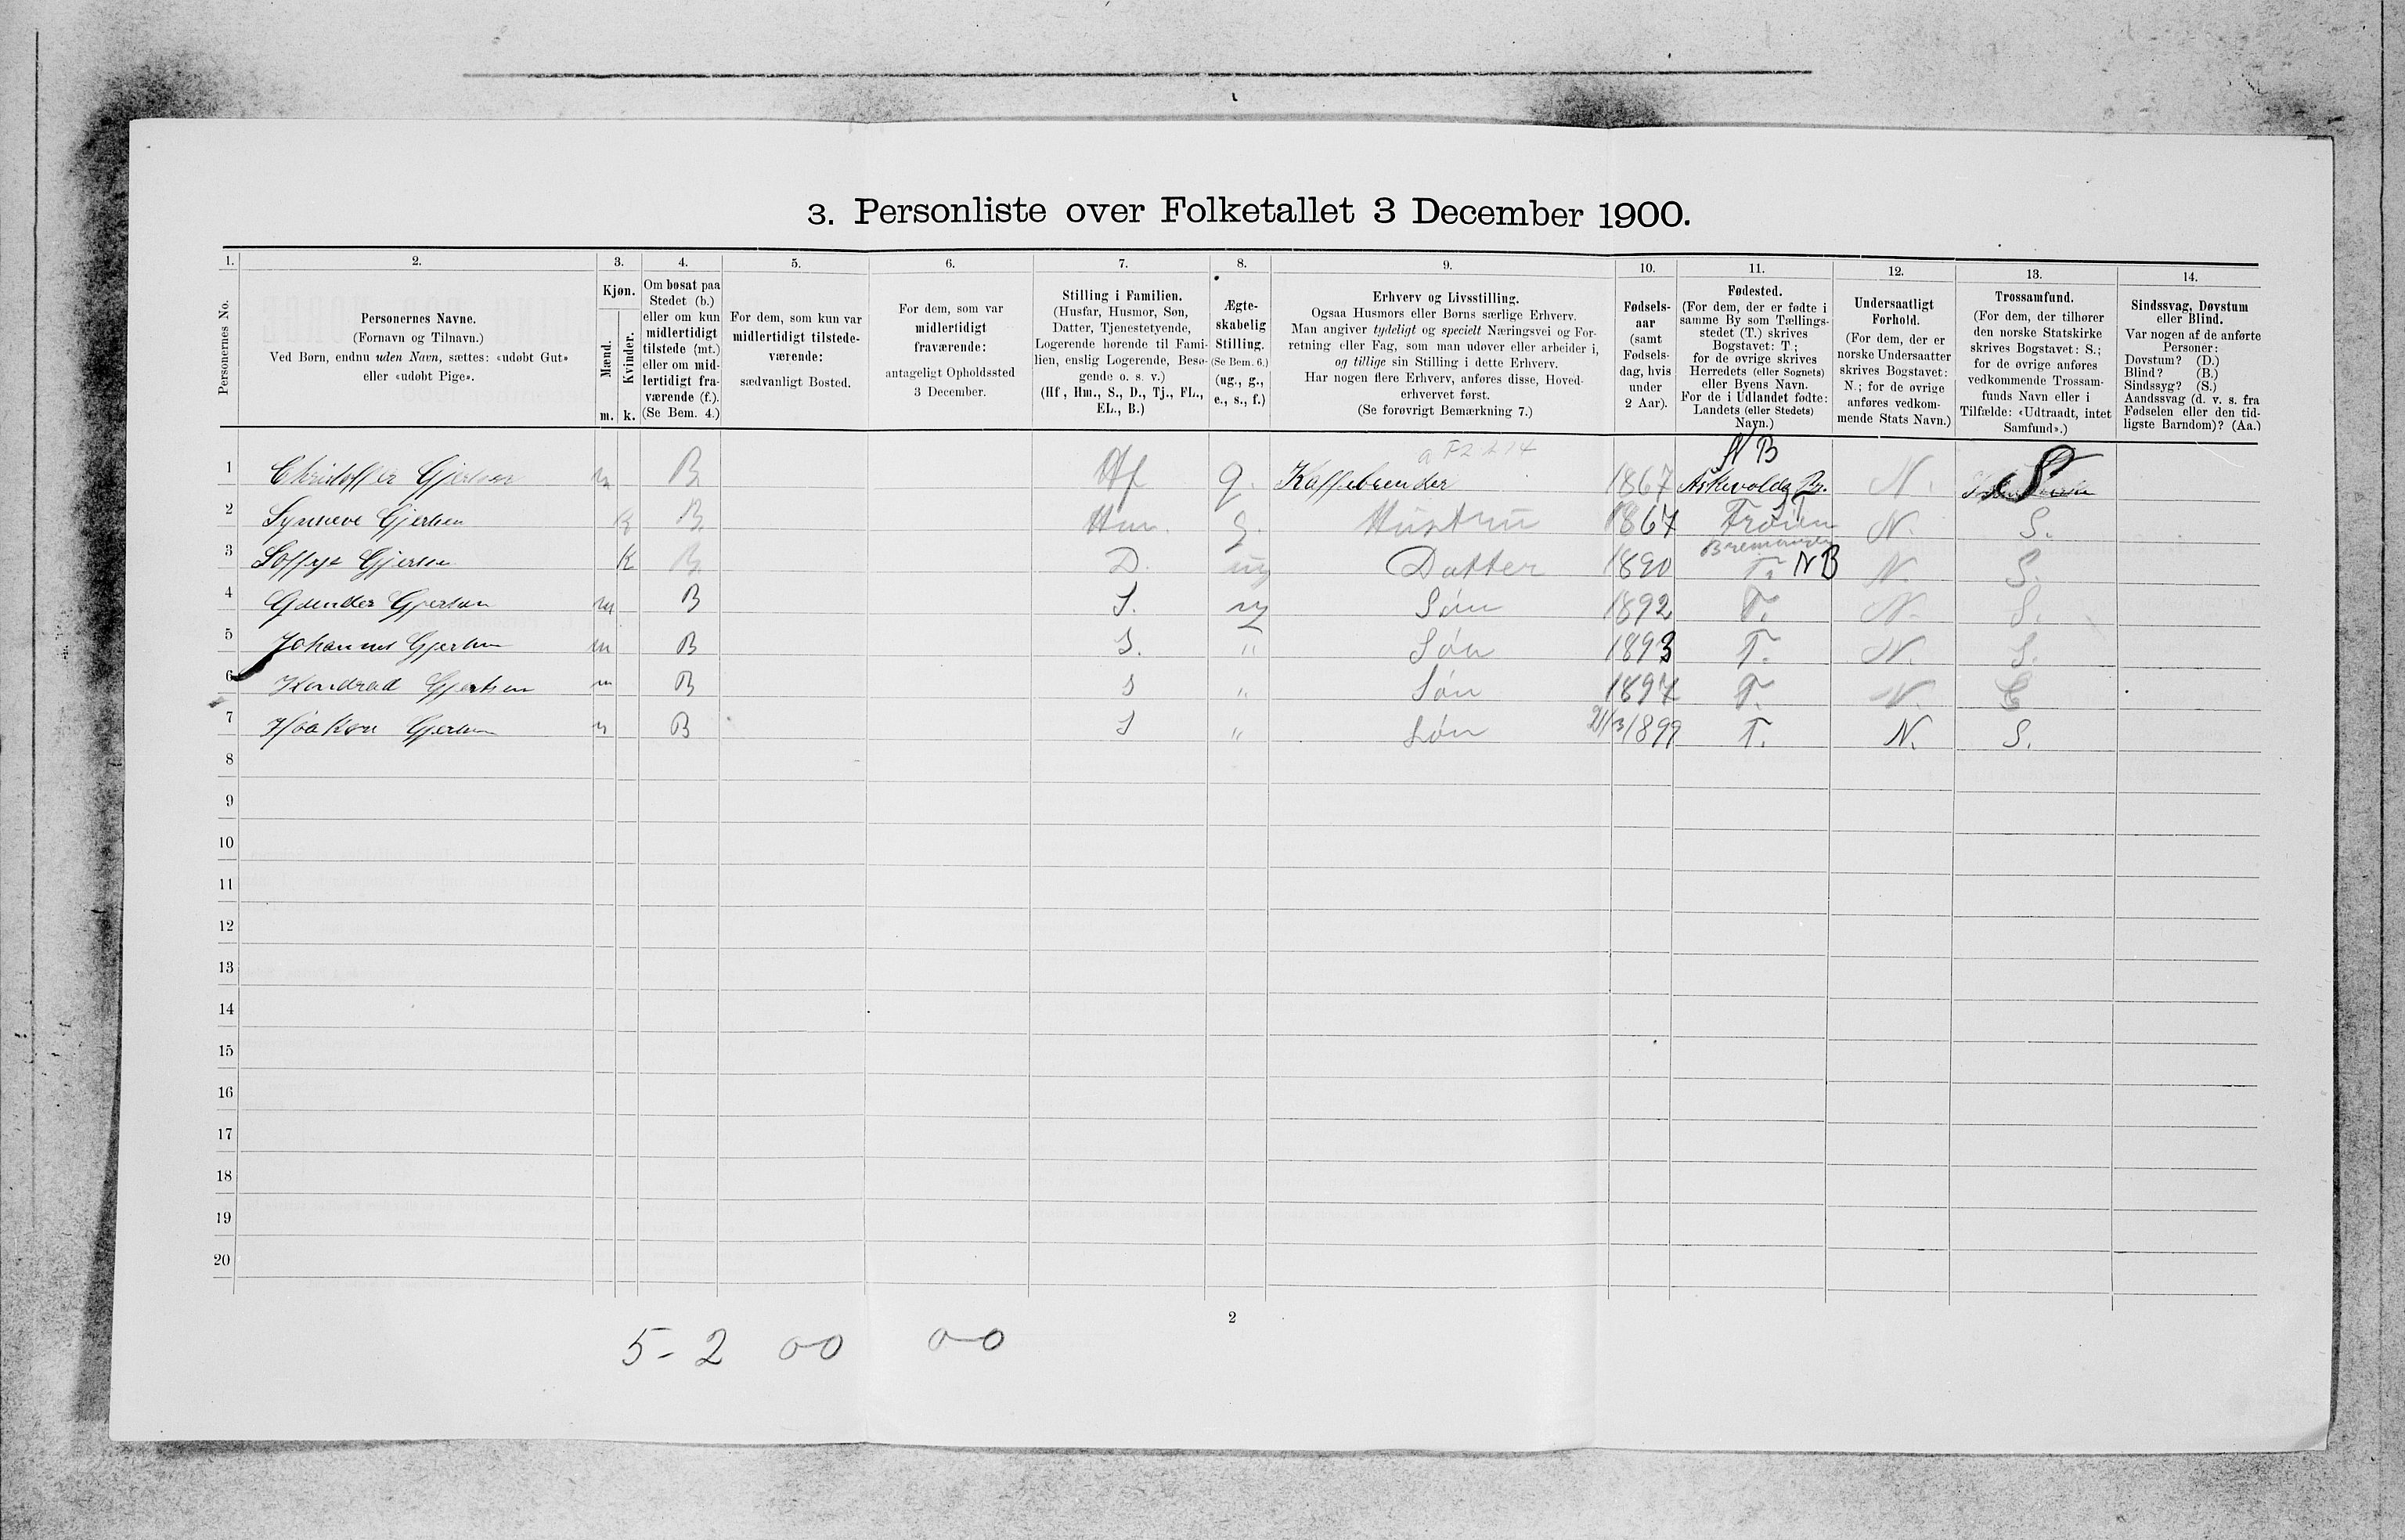 3. Personliste over Folketallet 3 December 1900.
1. 2. 3. 4. 5. 6. 7. 8. 9. 10. 11. 12. 13. 14.
Personernes No.
Personernes Navne.
(Fornavn og Tilnavn.)
Ved Børn, endnu uden Navn, sættes: «udøbt Gut»
eller «udøbt Pige».
Kjøn.
Mænd.
Kvinder.
m. k.
Om bosat paa
Stedet (b.)
eller om kun
midlertidigt
tilstede (mt.)
eller om mid-
lertidigt fra-
værende (f.).
(Se Bem. 4.)
For dem, som kun var
midlertidigt tilstede-
værende:
sædvanligt Bosted.
For dem, som var
midlertidigt
fraværende:
antageligt Opholdssted
3 December.
Stilling i Familien.
(Husfar, Husmor, Søn,
Datter, Tjenestetyende,
Logerende hørende til Fami-
lien, enslig Logerende, Besø-
gende o. s. v.)
(Hf., Hm., S., D., Tj., FL.,
EL., B.)
Ægte-
skabelig
Stilling.
(Se Bem. 6.)
(ug., g.,
e., s., f.)
Erhverv og Livsstilling.
Ogsaa Husmors eller Børns særlige Erhverv.
Man angiver tydeligt og specielt Næringsvei og For-
retning eller Fag, som man udøver eller arbeider i,
og tillige sin Stilling i dette Erhverv.
Har nogen flere Erhverv, anføres disse, Hoved-
erhvervet først.
(Se forøvrigt Bemærkning 7.)
Fødsels-
aar
(samt
Fødsels-
dag, hvis
under
2 Aar).
Fødested.
(For dem, der er fødte i
samme By som Tællings-
stedet (T.) skrives
Bogstavet: T;
for de øvrige skrives
Herredets (eller Sognets)
eller Byens Navn.
For de i Udlandet fødte:
Landets (eller Stedets)
Navn.)
Undersaatligt
Forhold.
(For dem, der er
norske Undersaatter
skrives Bogstavet:
N.; for de øvrige
anføres vedkom-
mende Stats Navn.)
Trossamfund.
(For dem, der tilhører
den norske Statskirke
skrives Bogstavet: S.;
for de øvrige anføres
vedkommende Trossam-
funds Navn eller i
Tilfælde: «Udtraadt, intet
Samfund».)
Sindssvag, Døvstum
eller Blind.
Var nogen af de anførte
Personer:
Døvstum? (D.)
Blind? (B.)
Sindssyg? (S.)
Aandssvag (d. v. s. fra
Fødselen eller den tid-
ligste Barndom)? (Aa.)
NB
1 Christoffer Gjertsen m B Hf g. Kaffebrender 1867 Askevold N. S
2 Synneve Gjertsen K B Hm. g. Hustru 1867 N. S.
Bremanger
3 Gjertsen K B. D. ug Datter 1890 T. NB N. S.
4 Gjertsen m B S. ug Søn 1892 T. N. S.
5 Johannes Gjertsen m B S. " Søn 1893 T. N. S.
6 Kondrad Gjertsen m B S " Søn 1897 T. N.
7 Haakon Gjertsen m B S " Søn 21/3 1899 T. N. S.
8
9
10
11
12
13
14
15
16
17
18
19
20
2
5-2 00 00